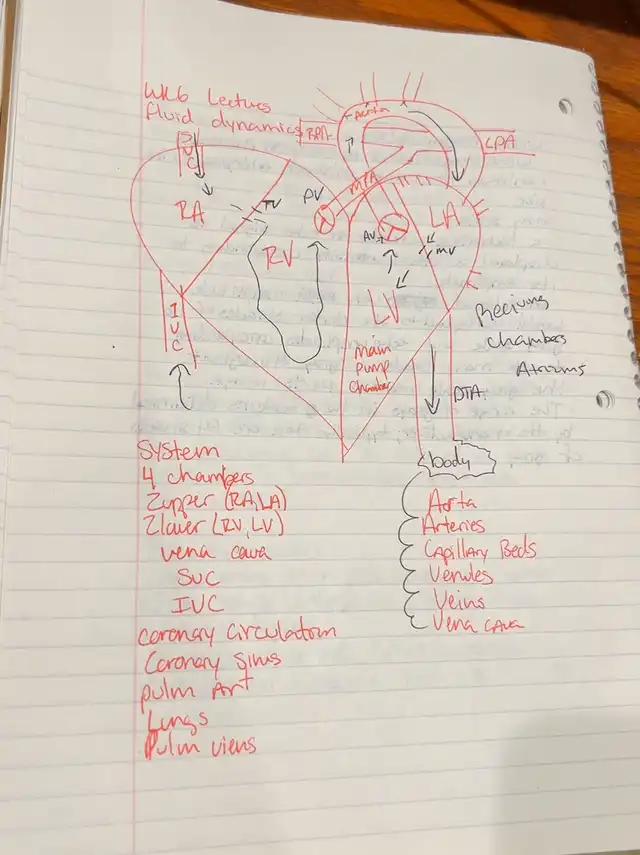 WK6 Lecture
fluid dynamics
SVC
RA
TV
RV
PV
RPA
Aorta
LPA
MPA
LA
AV
MV
LV
main
pump
chamber
IVC
Reciving
chambers
Atriums
DTA
body
System
4 chambers
2upper (RA,LA)
2lower (RV, LV)
vena cava
SVC
IVC
Coronary Circulation
Coronary Sinus
pulm Art
Lungs
Pulm viens
Aorta
Arteries
Capillary Beds
Venules
Veins
Vena cava